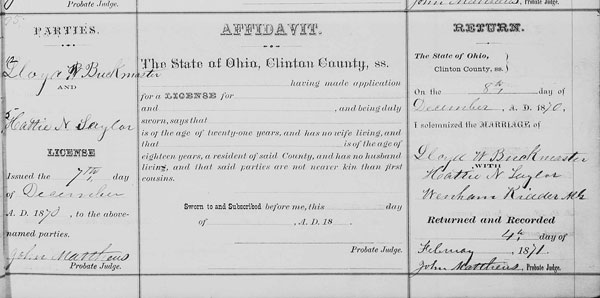 Probate Judge.
John Matthews, Probate Judge.
PARTIES.
Lloyd W Buckmaster
AND
Hattie N Taylor
LICENSE
Issued the 7th day
of December
A. D. 1870, to the above-
named parties.
John Matthews
Probate Judge.
AFFIDAVIT.
The State of Ohio, Clinton County, ss.
having made application
for a LICENSE for
and , and being duly
sworn, says that
is of the age of twenty-one years, and has no wife living, and
that is of the age of
eighteen years, a resident of said County, and has no husband
living, and that said parties are not nearer kin than first
cousins.
Sworn to and Subscribed before me, this day
of , A. D. 18
Probate Judge.
RETURN.
The State of Ohio,
Clinton County, ss.
On the 8th day of
December, A. D. 1870,
I solemnized the MARRIAGE of
Lloyd W Buckmaster
WITH
Hattie N Taylor
Returned and Recorded
4th day of
February, 1871.
John Matthews, Probate Judge.